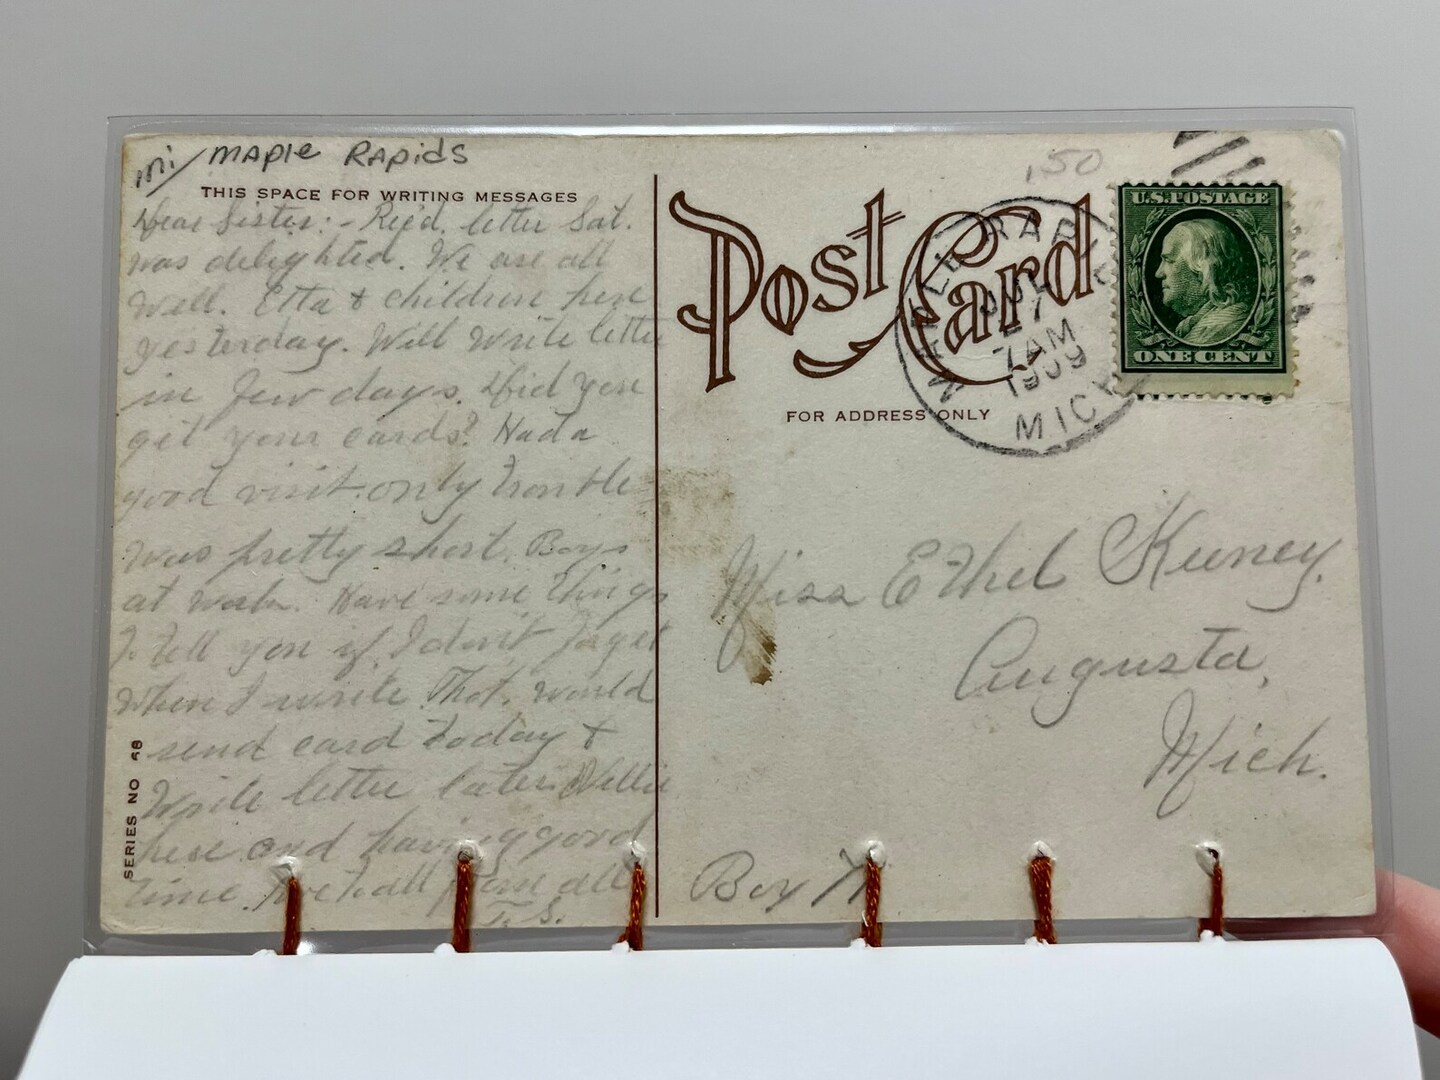 mi/ Maple Rapids
THIS SPACE FOR WRITING MESSAGES
Dear Sister:- Rec'd. letter Sat.
was delighted. We are all
well. Etta & children here
yesterday. Will write letter
in few days. Did you
get your cards? Had a
good visit only trouble
was pretty short. Boys
at work. Have some things
to tell you if I don't forget
when I write. Thot. would
send card today &
write letter later. Nellie
here and having good
time. all from all
T. S.
SERIES NO 68
Post Card
FOR ADDRESS ONLY
.50
MAPLE RAPIDS
7 AM
1909
MICH
U.S. POSTAGE
ONE CENT
Miss Ethel Keeney.
Augusta,
Mich.
Box